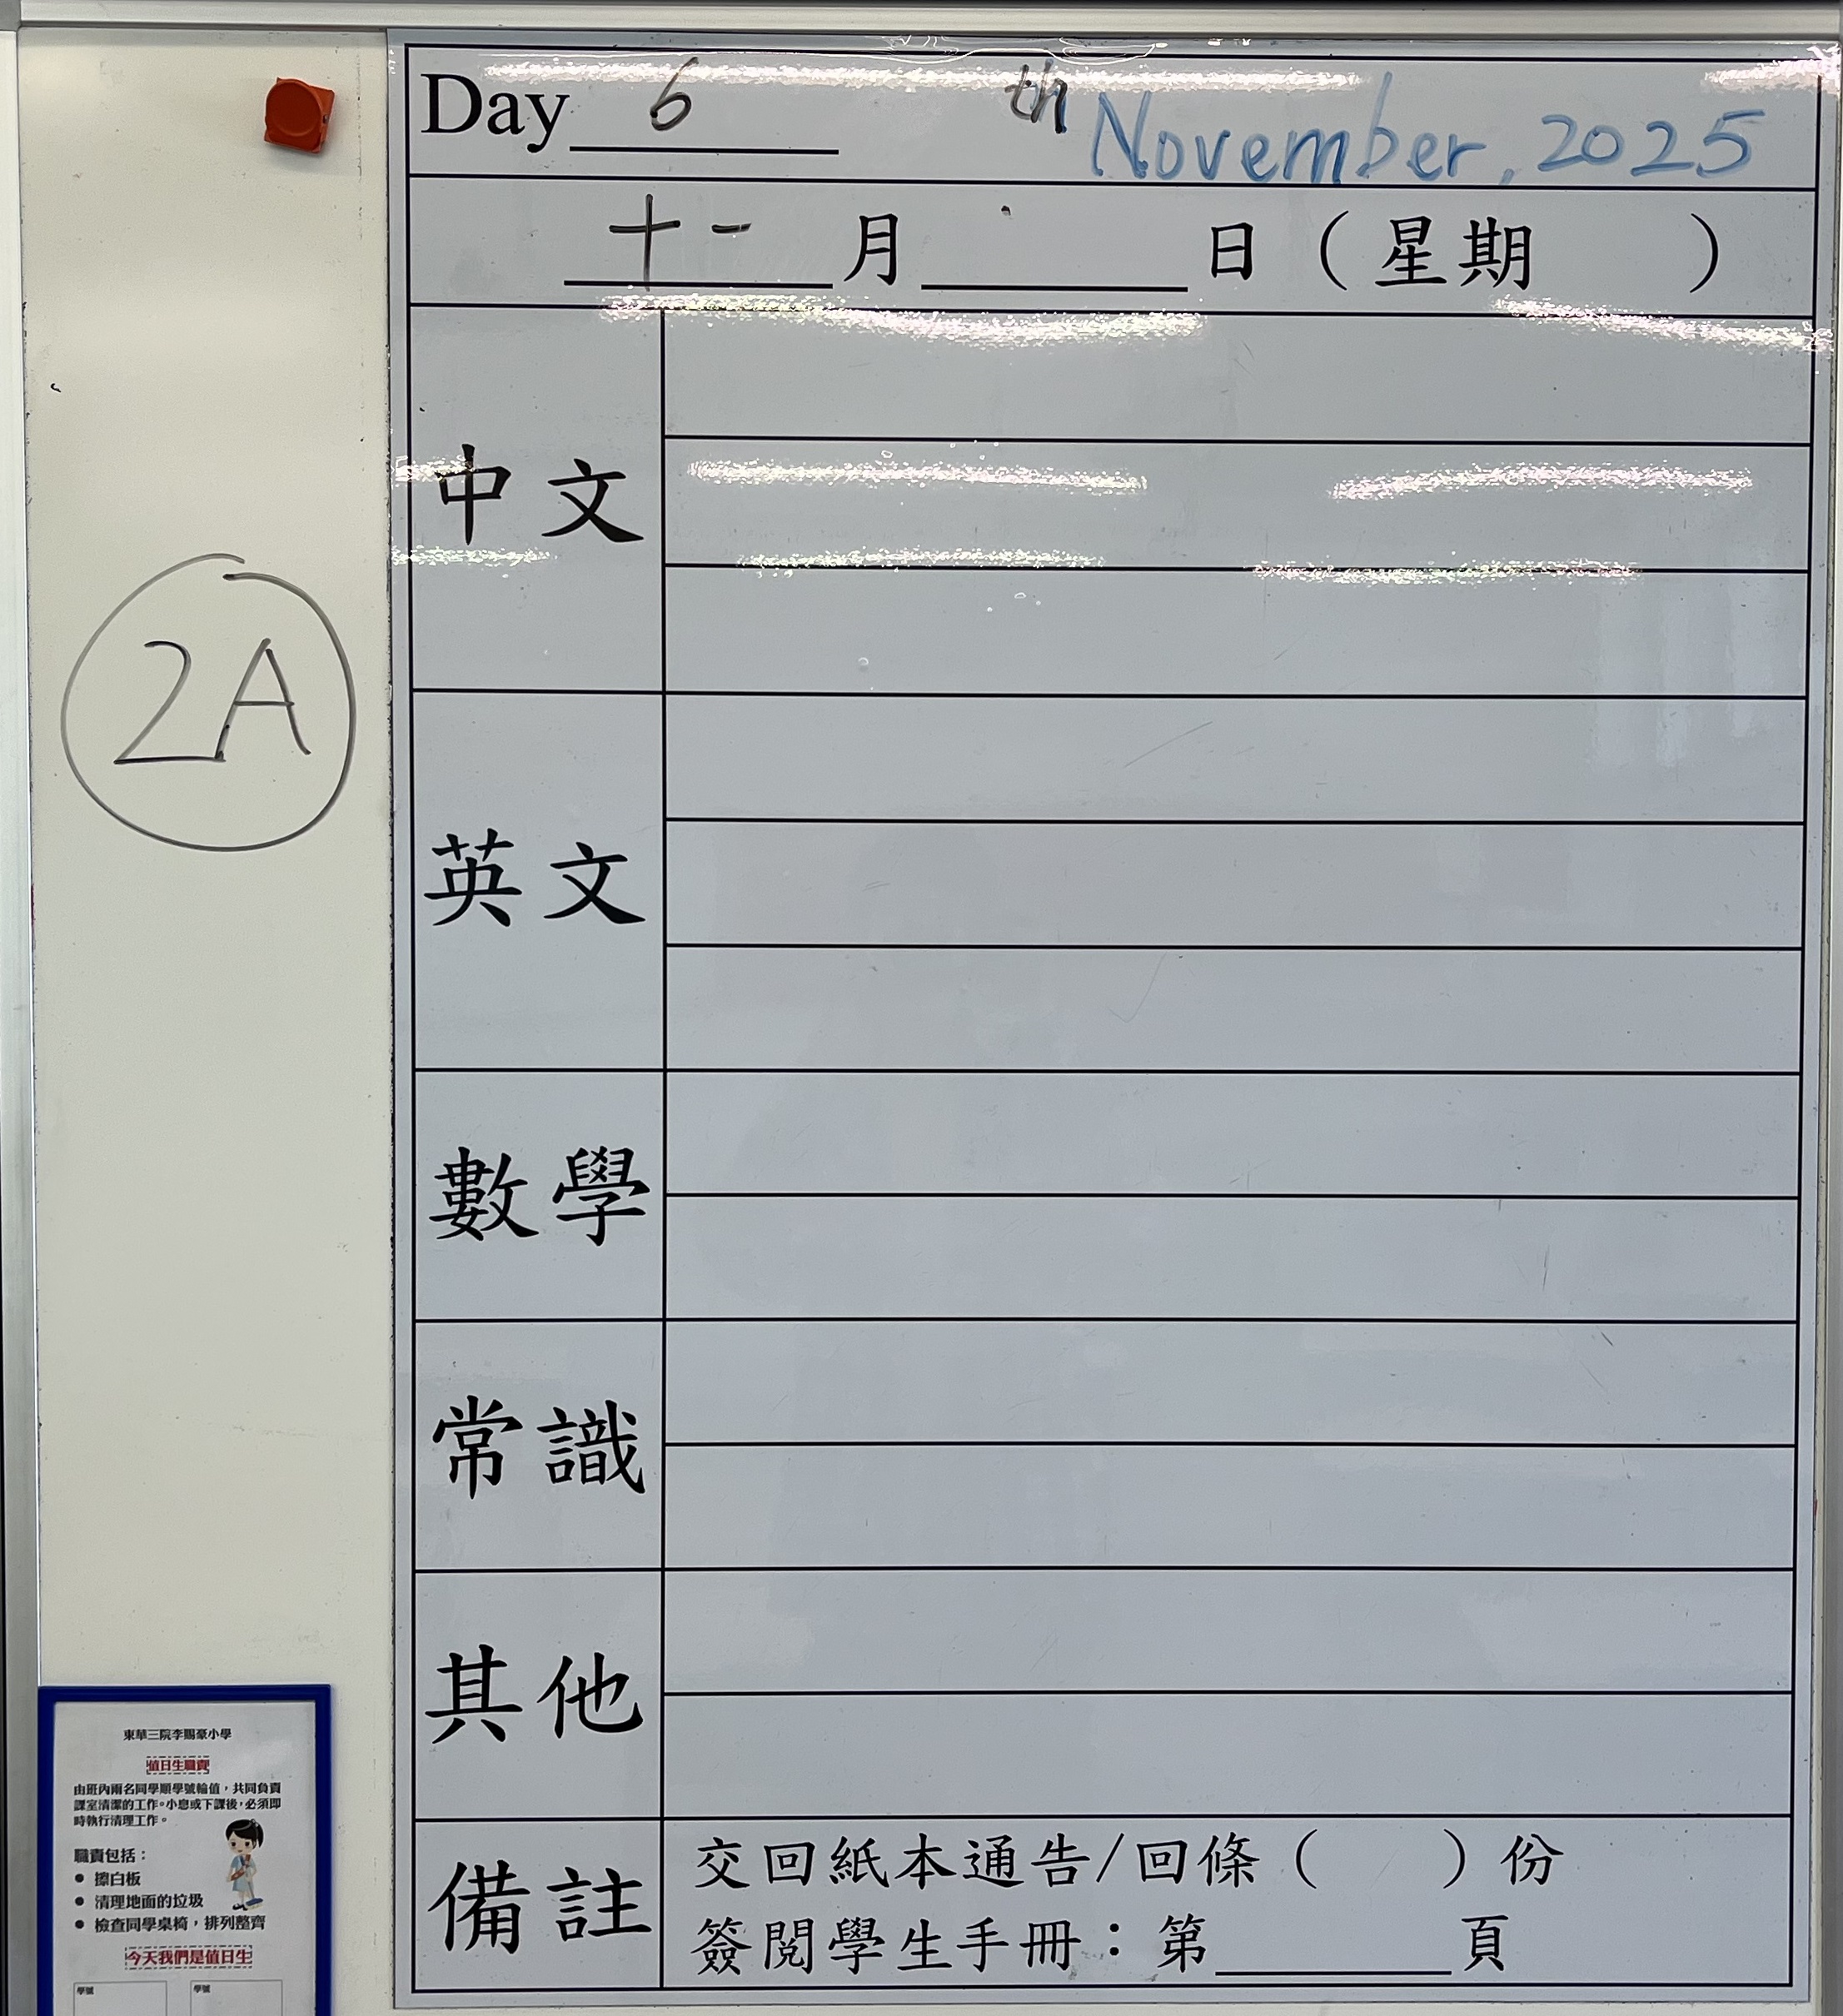 Day 6 th November, 2025
十一 月 日 (星期 )
中文
2A
英文
數學
常識
其他
備註
交回紙本通告/回條( )份
簽閱學生手冊:第 頁
東華三院李賜豪小學
值日生職責
由班內兩名同學順學號輪值,共同負責
課室清潔的工作。小息或下課後,必須即
時執行清理工作。
職責包括:
● 擦白板
● 清理地面的垃圾
● 檢查同學桌椅,排列整齊
今天我們是值日生
學號 學號